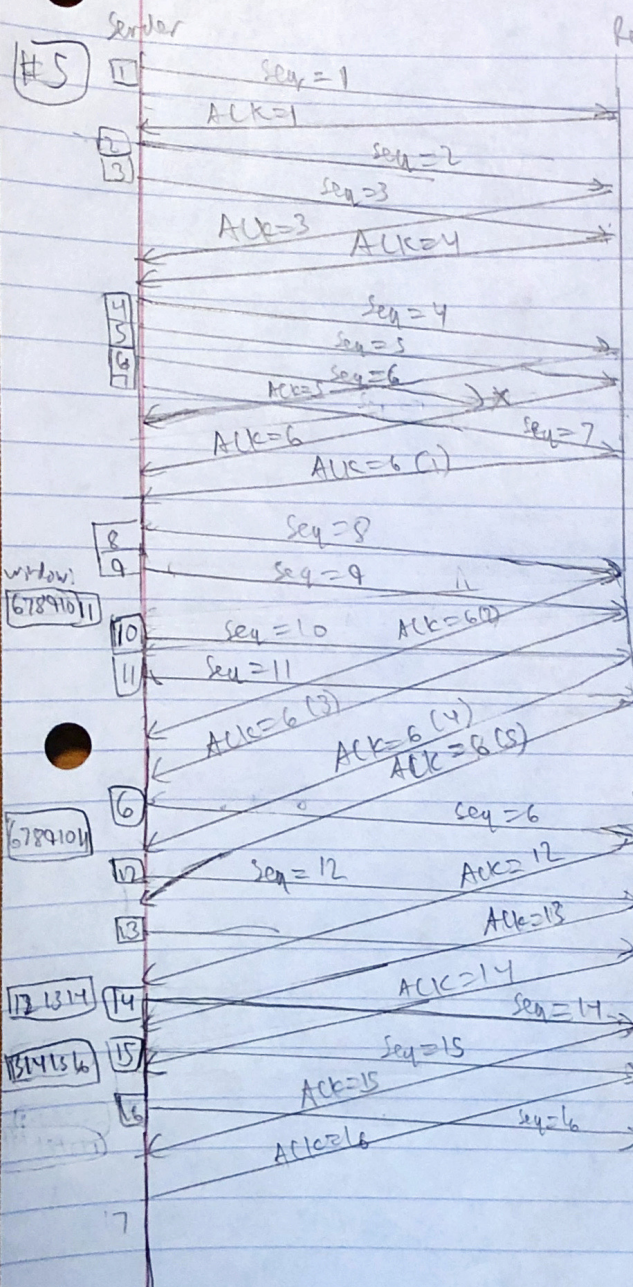 Sender
#5
1
Seq=1
ACK=1
2
Seq=2
3
Seq=3
ACK=3
ACK=4
4
Seq=4
5
Seq=5
6
Seq=6
ACK=5
7
Seq=7
ACK=6
ACK=6 (1)
8
Seq=8
9
Seq=9
window:
67891011
10
Seq=10
ACK=6(2)
11
Seq=11
ACK=6(3)
ACK=6(4)
ACK=6(5)
6
Seq=6
67891011
12
Seq=12
ACK=12
13
ACK=13
ACK=14
121314
14
Seq=14
13141516
15
Seq=15
ACK=15
16
Seq=16
ACK=16
7